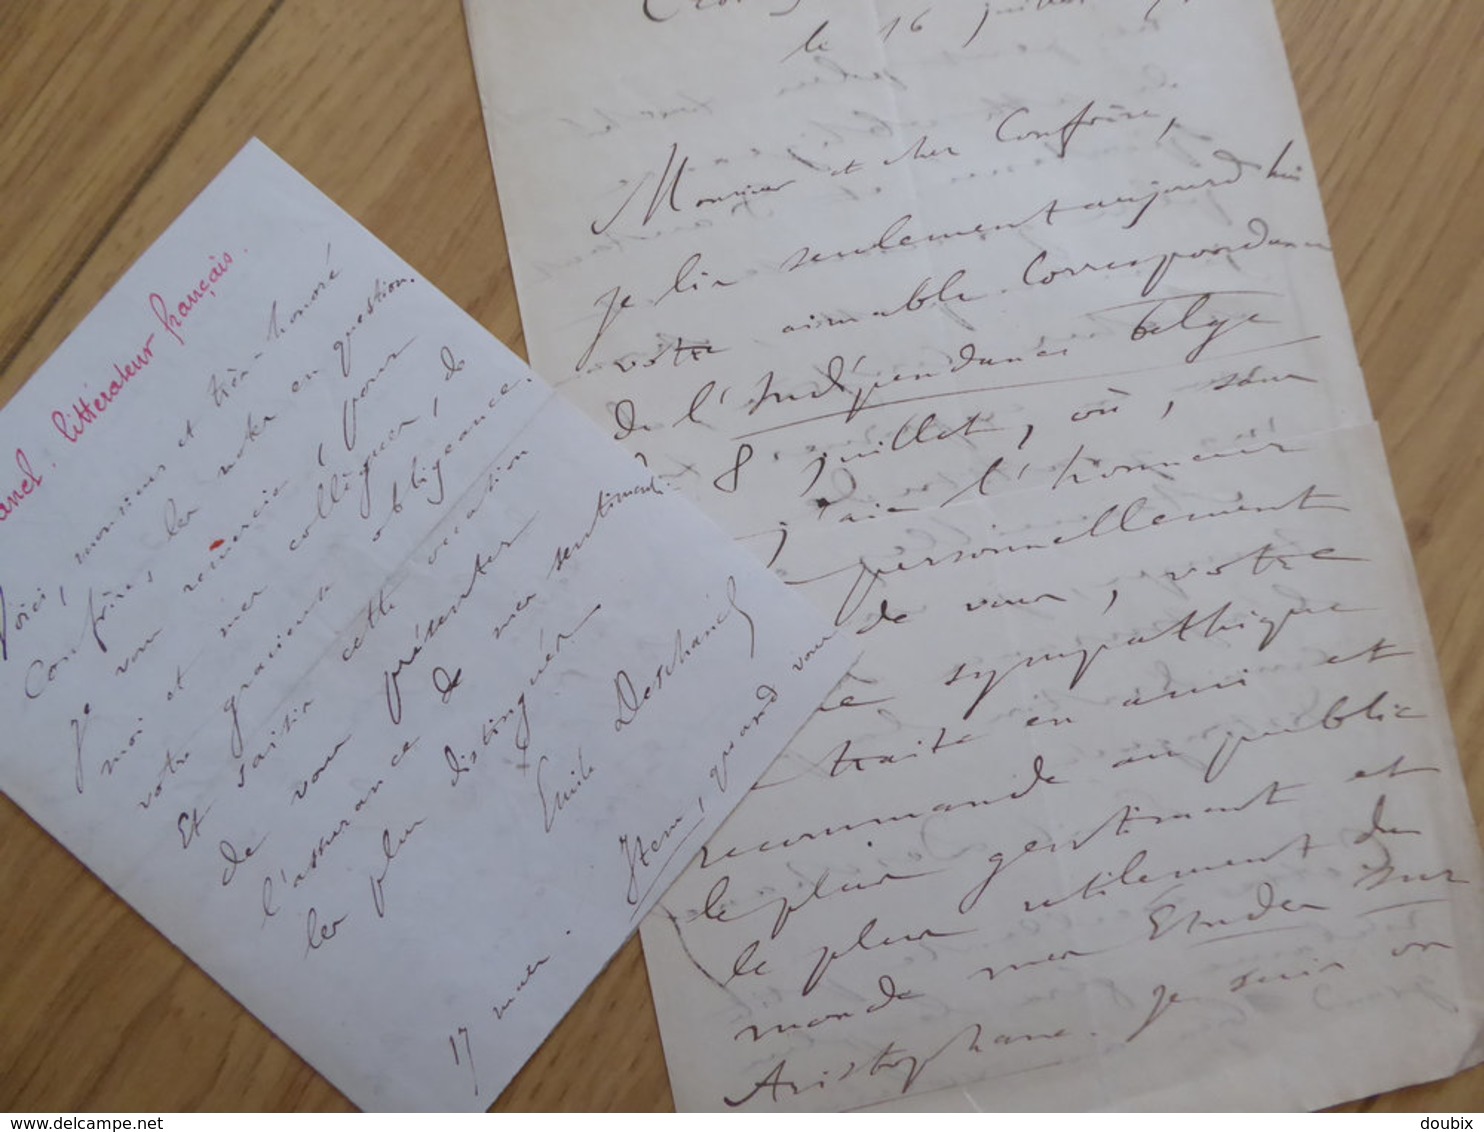 anel. littérateur français.
Voici, monsieur et très honoré
Confrère, les notes en question.
Je vous remercie, pour
moi et mes collègues, de
votre gracieuse obligeance.
Et saisis cette occasion
de vous présenter
l'assurance de mes sentiments
les plus distingués.
Emile Deschanel
17 mars.
Item, quand vous
le 16 juillet
Monsieur et cher Confrère,
je lis seulement aujourd'hui
votre aimable Correspondance
de l'Indépendance belge
8 juillet, où, sans
j'aie l'honneur
personnellement
de vous, votre
sympathique
traite en ami et
recommande au public
le plus gentiment et
le plus utilement du
monde mes Etudes sur
Aristophane. Je suis on
delcampe.net
doubix